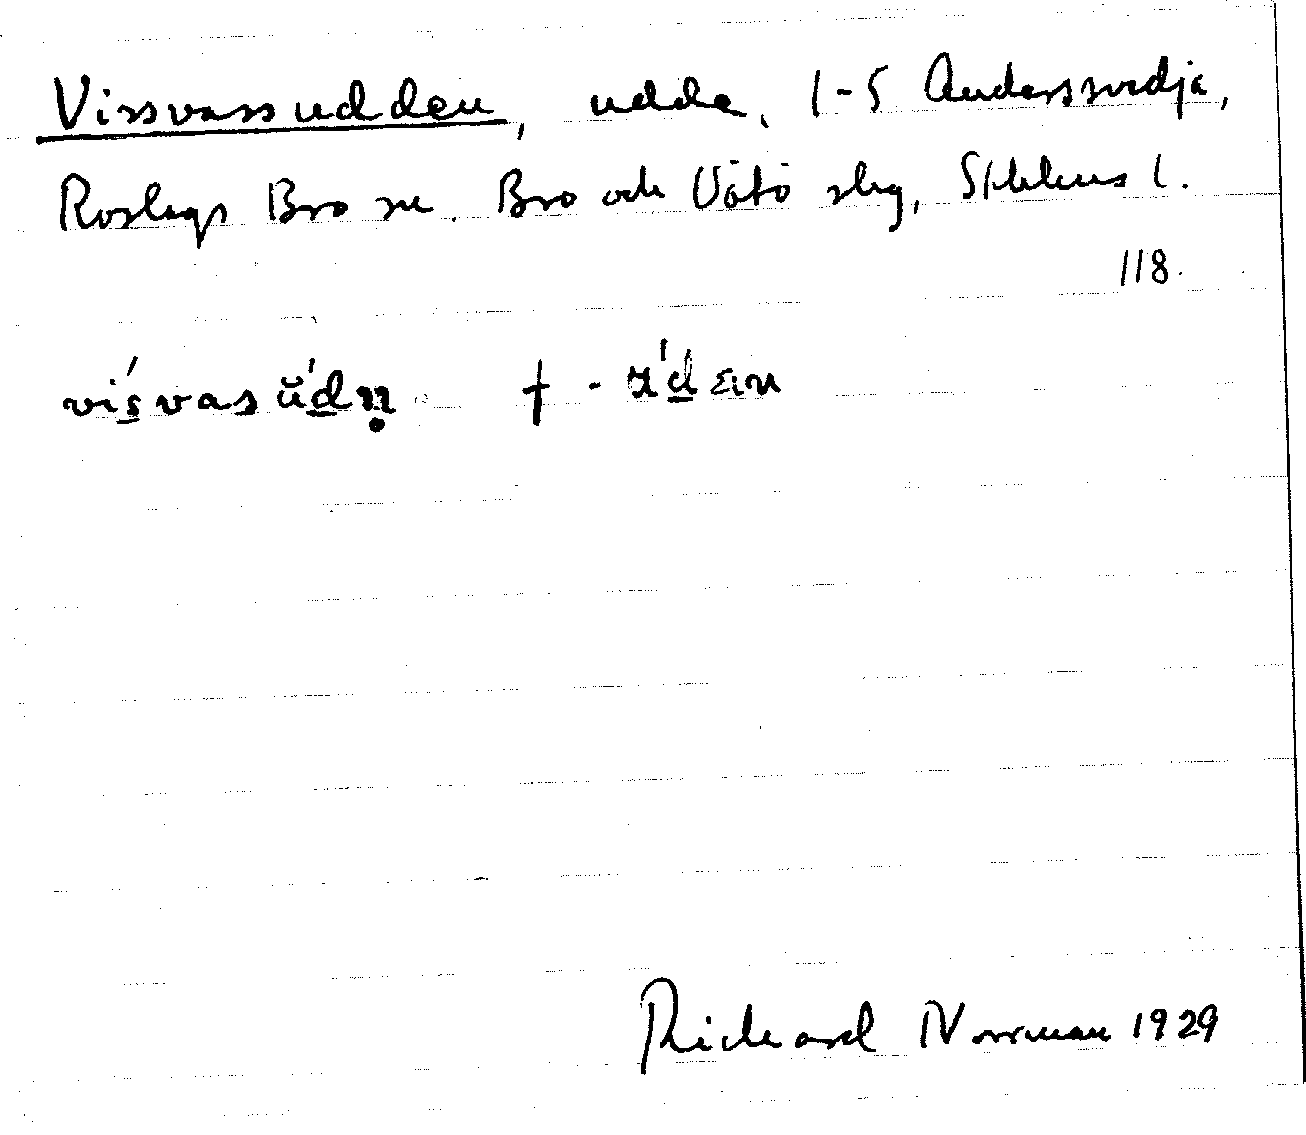 Vissvassudden, udde, 1-5 Anderssvedja,
Roslags Bro sn. Bro och Vätö skg, Sthlms l.
118.
viś̱vas ŭ́ḏṇ † - ú̱ḏɛn
Richard Norrman 1929